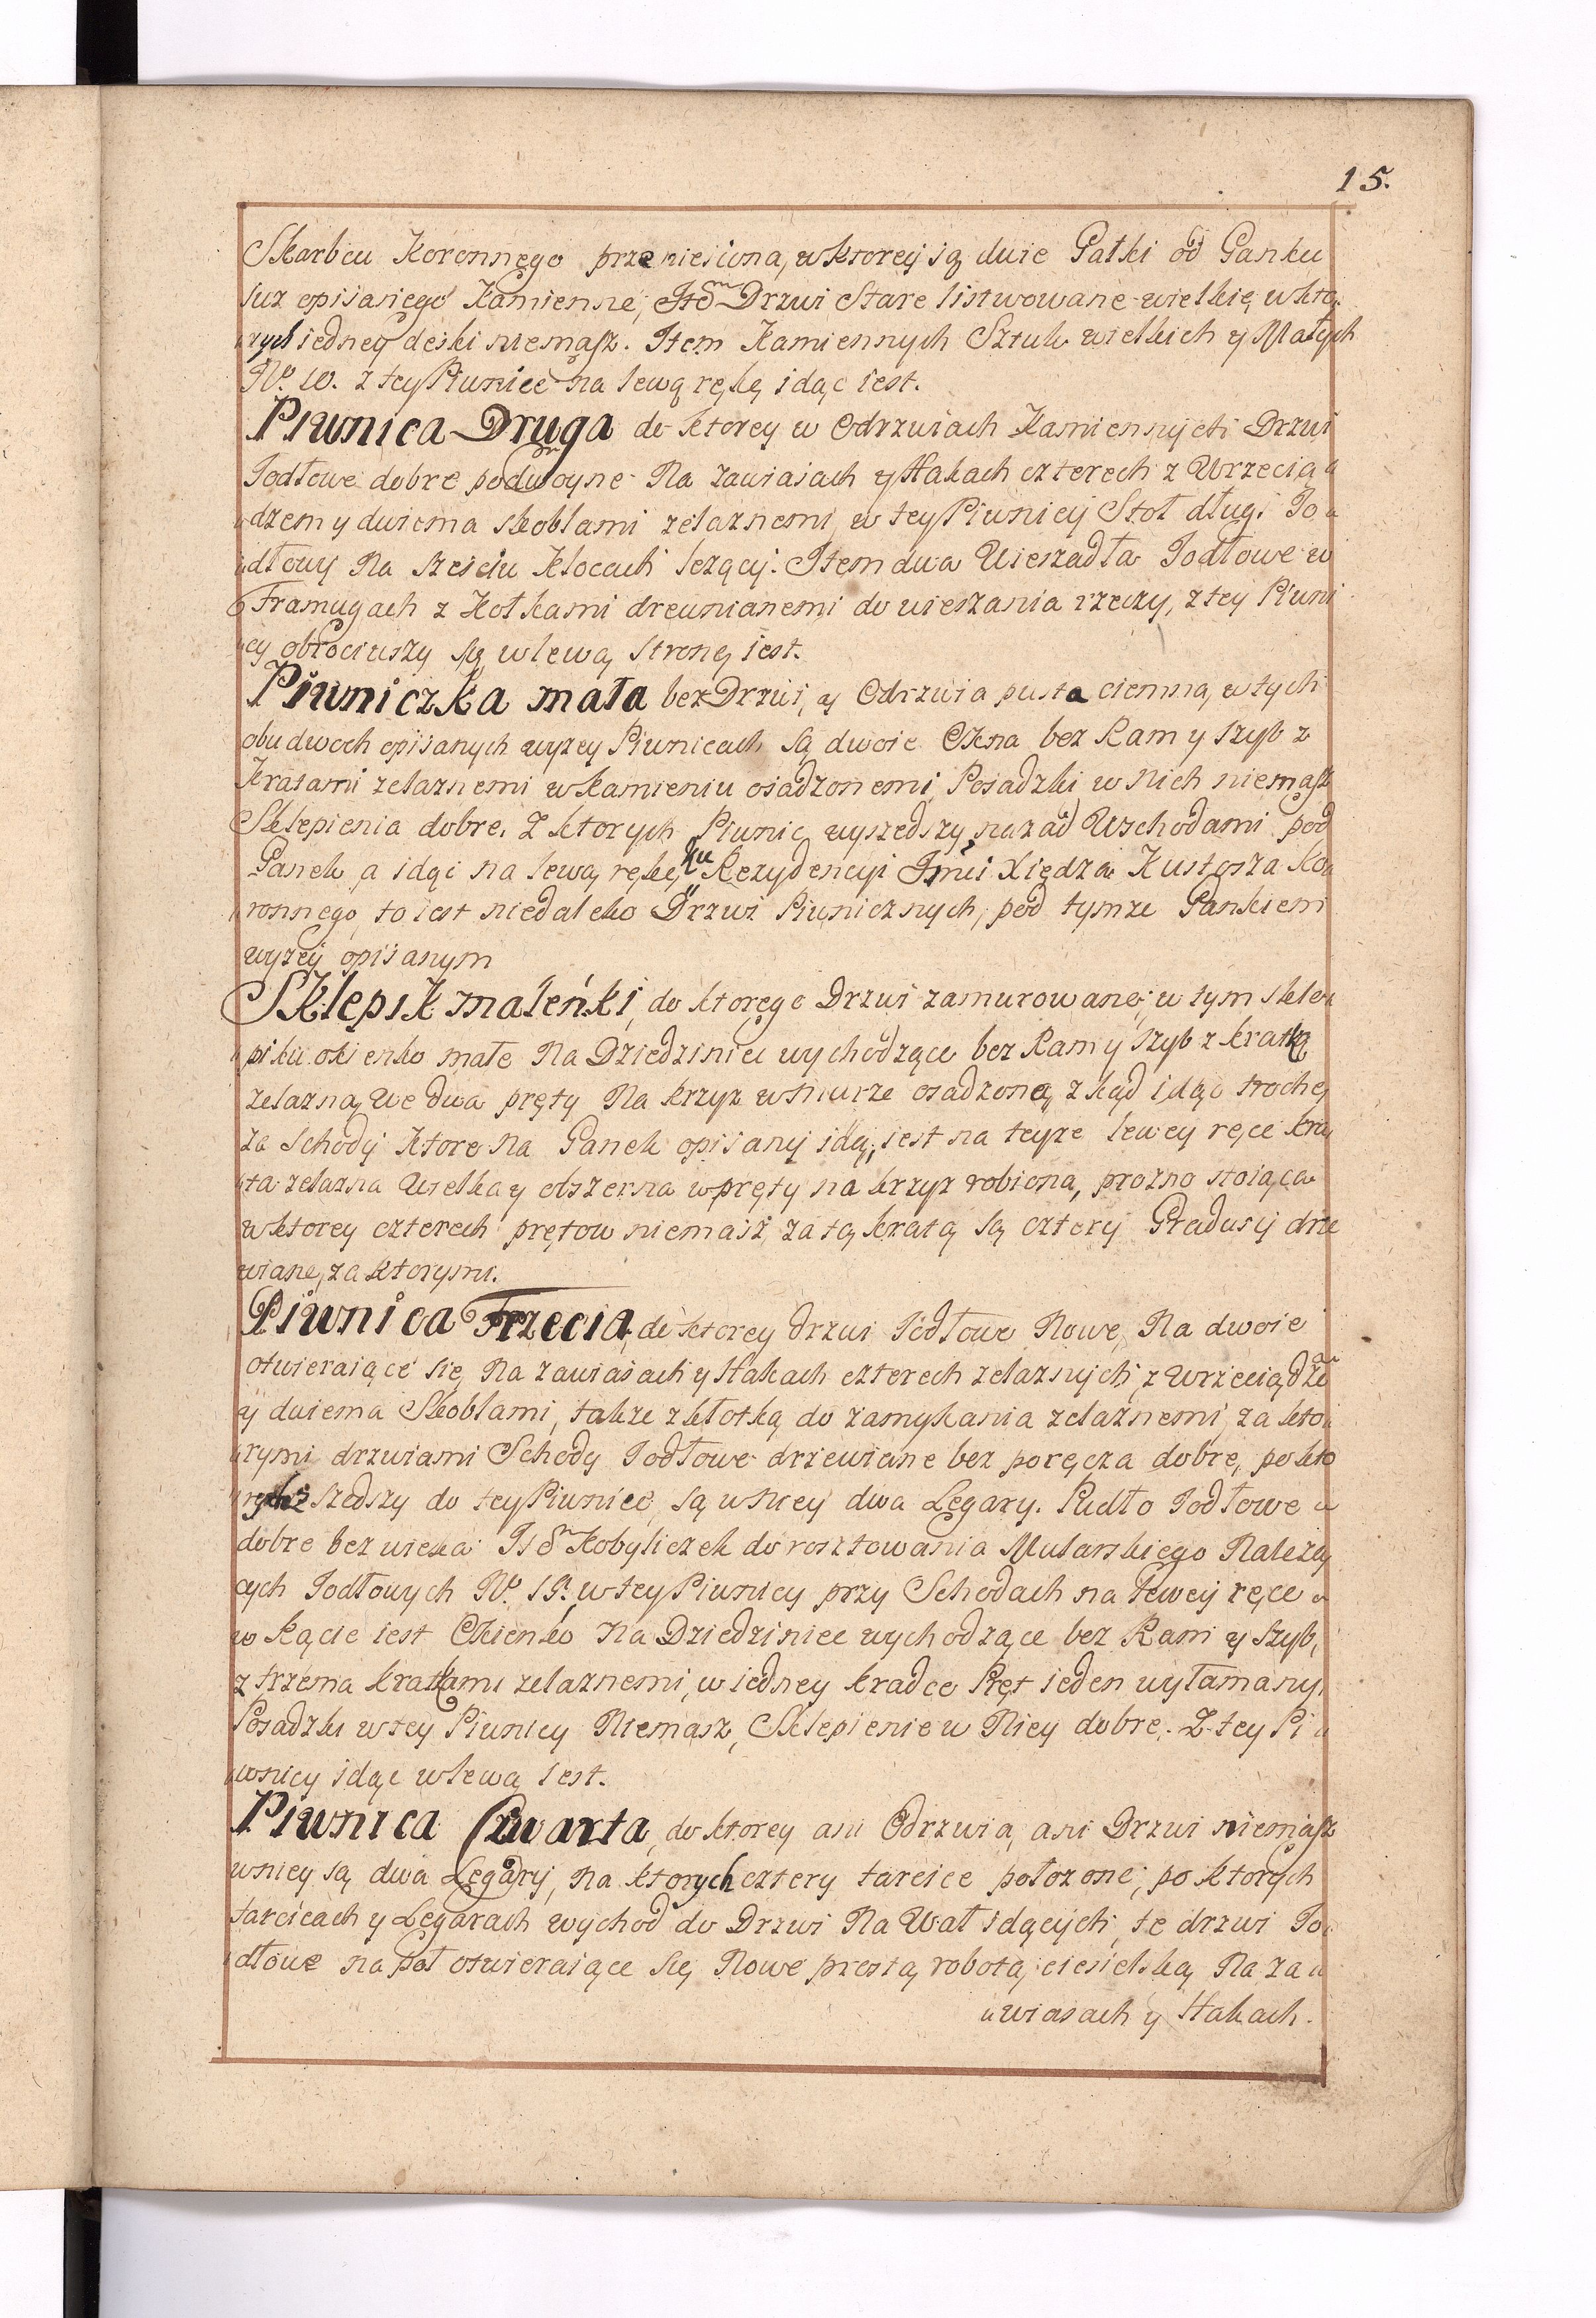 15.
Skarbcu Koronnego przeniesiona, w ktorey są dwie Gałki od Ganku
iuz opisanego Kamienne, Itẽm Drzwi Stare listwowane wielkie, w kto,
rych iedney deski niemasz. Item Kamiennych Sztuk wielkich y Małych
No. 10. z tey Piwnice na lewą rękę idąc iest.
Piwnica Druga do ktorey w Odrzwiach Kamiennych Drzwi
Jodłowe dobre podwoyne Na zawiasach y Hakach czterech z Wrzecią
dzem y dwiema skoblami zelaznemi, w tey Piwnicy Stoł długi Jo
dłowy Na sześciu klocach lezący. Item dwa Wieszadła Jodłowe w
Framugach z Kołkami drewnianemi do wieszania rzeczy, z tey Piwni
cy obrociwszy się w lewą stronę iest.
Piwniczka mała bez Drzwi, y Odrzwia pusta ciemna, w tych
obudwoch opisanych wyzey Piwnicach są dwoie Okna bez Ram y szyb z
Kratami zelaznemi w kamieniu osadzonemi, Posadzki w nich niemasz
Sklepienia dobre. Z ktorych Piwnic wyszedszy nazad Wschodami pod
Ganek a idąc na lewą rękę, ku Rezydencyi Jmći Xiędza Kustosza Ko
ronnego, to iest niedaleko Drzwi Piwnicznych, pod tymze Gankiem
wyzey opisanym
Sklepik maleńki, do ktorego Drzwi zamurowane, w tym skle
piku okienko małe Na Dziedziniec wychodzące bez Ram y Szyb z kratką
zelazną we dwa pręty Na krzyz w murze osadzoną, z kąd idąc trochę
za Schody ktore na Ganek opisany idą, iest na teyze lewey ręce kra
ta zelazna Wielka y obszerna w pręty na krzyz robiona, prozno stoiąca
w ktorey czterech prętow niemasz, za tą kratą są cztery Gradusy drze
wiane, za ktorymi.
Piwnica Trzecia, do ktorey drzwi Jodłowe Nowe, Na dwoie
otwieraiące się, Na zawiasach y Hakach czterech zelaznych, z Wrzeciądzẽ
y dwiema Skoblami, takze z kłotką do zamykania zelaznemi, za kto
rymi drzwiami Schody Jodłowe drzewiane bez poręcza dobre, po kto
rych zszedszy do tey Piwnice, są w niey dwa Legary. Pudło Jodłowe
dobre bez wieka Itẽ Kobyliczek do rosztowania Mularskiego Nalezą
cych Jodłowych No. 19. w tey Piwnicy przy Schodach na lewey ręce
w kącie iest Okienko Na Dziedziniec wychodzące bez Ram y szyb,
z trzema kratkami zelaznemi, w iedney kradce Pręt ieden wyłamany,
Posadzki w tey Piwnicy Niemasz, Sklepienie w Niey dobre. Z tey Pi
wnicy idąc w lewą iest.
Piwnica Czwarta, do ktorey ani Odrzwia, ani Drzwi niemasz
w niey są dwa Legary, na ktorych cztery tarcice połozone, po ktorych
tarcicach y Legarach wychod do Drzwi Na Wał idących, te drzwi Jo
dłowe na poł otwieraiące się Nowe prostą robotą ciesielską Na za
wiasach y Hakach.